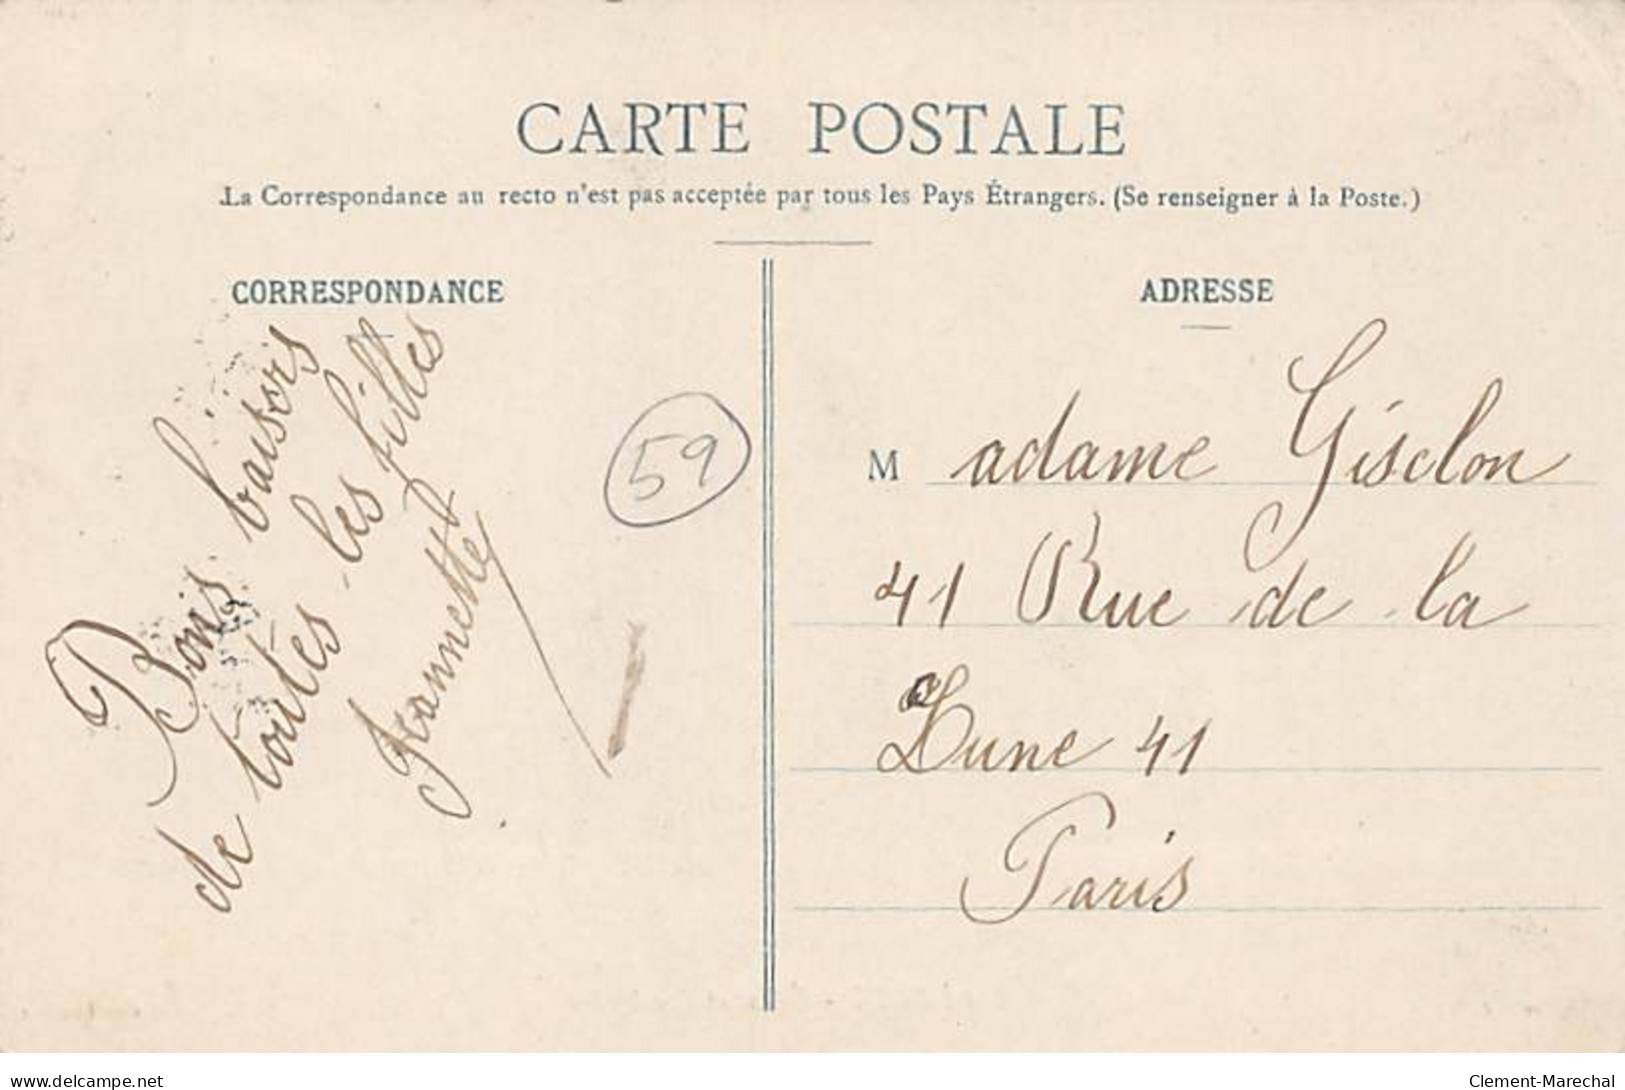 CARTE POSTALE
La Correspondance au recto n'est pas acceptée par tous les Pays Étrangers. (Se renseigner à la Poste.)
CORRESPONDANCE
Bons baisers
de toutes les filles
Jeannette
59
ADRESSE
Madame Gisclon
41 Rue de la
Lune 41
Paris
delcampe.net
Clement-Marechal